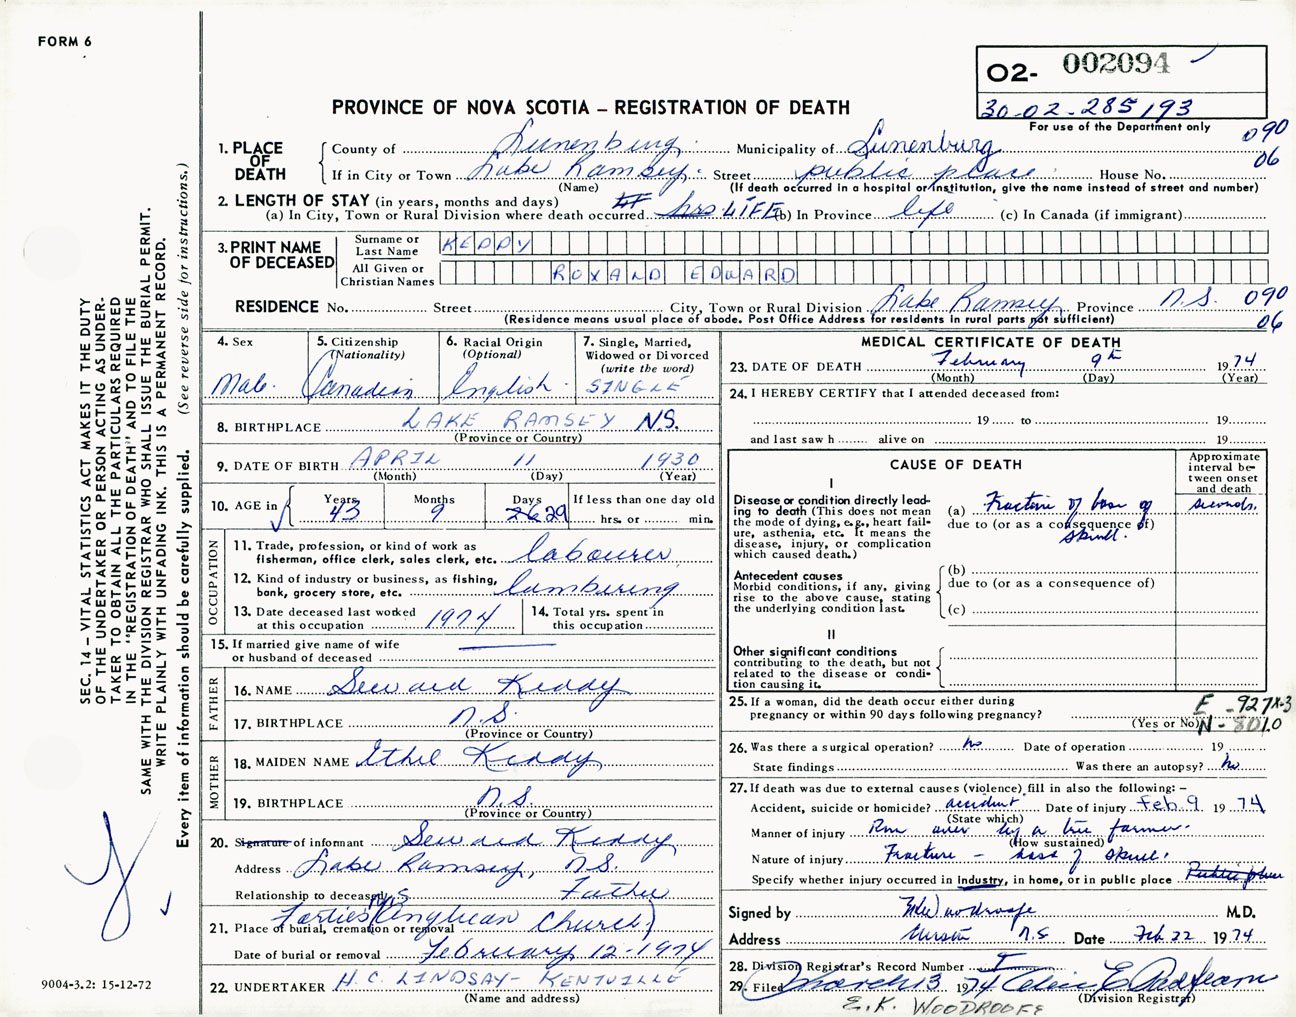 FORM 6
O2- 002094
30-02-285193
For use of the Department only
PROVINCE OF NOVA SCOTIA – REGISTRATION OF DEATH
090
06
1. PLACE OF DEATH
County of Lunenburg Municipality of Lunenburg
If in City or Town Lake Ramsey Street public place House No.
(Name) (If death occurred in a hospital or institution, give the name instead of street and number)
2. LENGTH OF STAY (in years, months and days)
(a) In City, Town or Rural Division where death occurred hrs LIFE (b) In Province life (c) In Canada (if immigrant)
3. PRINT NAME OF DECEASED
Surname or Last Name KEDDY
All Given or Christian Names ROXAND EDWARD
RESIDENCE No. Street City, Town or Rural Division Lake Ramsey Province N.S. 090
(Residence means usual place of abode. Post Office Address for residents in rural parts not sufficient) 06
4. Sex Male
5. Citizenship (Nationality) Canadian
6. Racial Origin (Optional) English
7. Single, Married, Widowed or Divorced (write the word) SINGLE
8. BIRTHPLACE LAKE RAMSEY N.S.
(Province or Country)
9. DATE OF BIRTH APRIL 11 1930
(Month) (Day) (Year)
10. AGE in Years 43 Months 9 Days 26 29 If less than one day old
hrs. or min.
OCCUPATION
11. Trade, profession, or kind of work as fisherman, office clerk, sales clerk, etc. labourer
12. Kind of industry or business, as fishing, bank, grocery store, etc. lumbering
13. Date deceased last worked at this occupation 1974
14. Total yrs. spent in this occupation
15. If married give name of wife or husband of deceased
FATHER
16. NAME Seward Keddy
17. BIRTHPLACE N.S.
(Province or Country)
MOTHER
18. MAIDEN NAME Ethel Keddy
19. BIRTHPLACE N.S.
(Province or Country)
20. Signature of informant Seward Keddy
Address Lake Ramsey, N.S.
Relationship to deceased Father
21. Place of burial, cremation or removal Forties (Anglican Church)
Date of burial or removal February 12-1974
22. UNDERTAKER H.C. LINDSAY- KENTVILLE
(Name and address)
MEDICAL CERTIFICATE OF DEATH
23. DATE OF DEATH February 9th 1974
(Month) (Day) (Year)
24. I HEREBY CERTIFY that I attended deceased from:
19 to 19
and last saw h alive on 19
CAUSE OF DEATH
Approximate interval between onset and death
I
Disease or condition directly leading to death (This does not mean the mode of dying, e.g., heart failure, asthenia, etc. It means the disease, injury, or complication which caused death.)
(a) Fracture of base of skull. seconds.
due to (or as a consequence of)
Antecedent causes
Morbid conditions, if any, giving rise to the above cause, stating the underlying condition last.
(b)
due to (or as a consequence of)
(c)
II
Other significant conditions
contributing to the death, but not related to the disease or condition causing it.
25. If a woman, did the death occur either during pregnancy or within 90 days following pregnancy?
(Yes or No)
E -927X-3
N - 801.0
26. Was there a surgical operation? no Date of operation 19
State findings Was there an autopsy? no
27. If death was due to external causes (violence) fill in also the following: –
Accident, suicide or homicide? accident Date of injury Feb 9 1974
(State which)
Manner of injury Run over by a tree farmer.
(How sustained)
Nature of injury Fracture – base of skull.
Specify whether injury occurred in Industry, in home, or in public place Public place
Signed by Woodroofe M.D.
Address N.S Date Feb 22 1974
28. Division Registrar's Record Number
29. Filed March 13 1974
(Division Registrar)
E.K. WOODROOFE
SEC. 14 – VITAL STATISTICS ACT MAKES IT THE DUTY
OF THE UNDERTAKER OR PERSON ACTING AS UNDER-
TAKER TO OBTAIN ALL THE PARTICULARS REQUIRED
IN THE "REGISTRATION OF DEATH" AND TO FILE THE
SAME WITH THE DIVISION REGISTRAR WHO SHALL ISSUE THE BURIAL PERMIT.
WRITE PLAINLY WITH UNFADING INK. THIS IS A PERMANENT RECORD.
Every item of information should be carefully supplied. (See reverse side for instructions.)
9004-3.2: 15-12-72